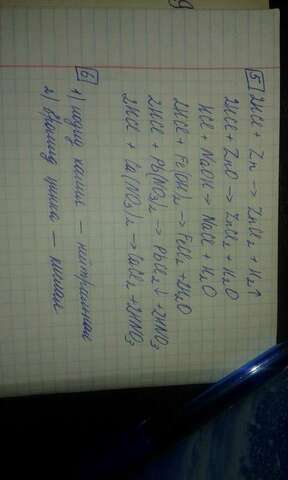 5 2HCl + Zn → ZnCl₂ + H₂↑
2HCl + ZnO → ZnCl₂ + H₂O
HCl + NaOH → NaCl + H₂O
2HCl + Fe(OH)₂ → FeCl₂ + 2H₂O
2HCl + Pb(NO₃)₂ → PbCl₂↓ + 2HNO₃
2HCl + Ca(NO₃)₂ → CaCl₂ + 2HNO₃
6 1) иодид калия – нейтральная
2) бромид цинка – кислая